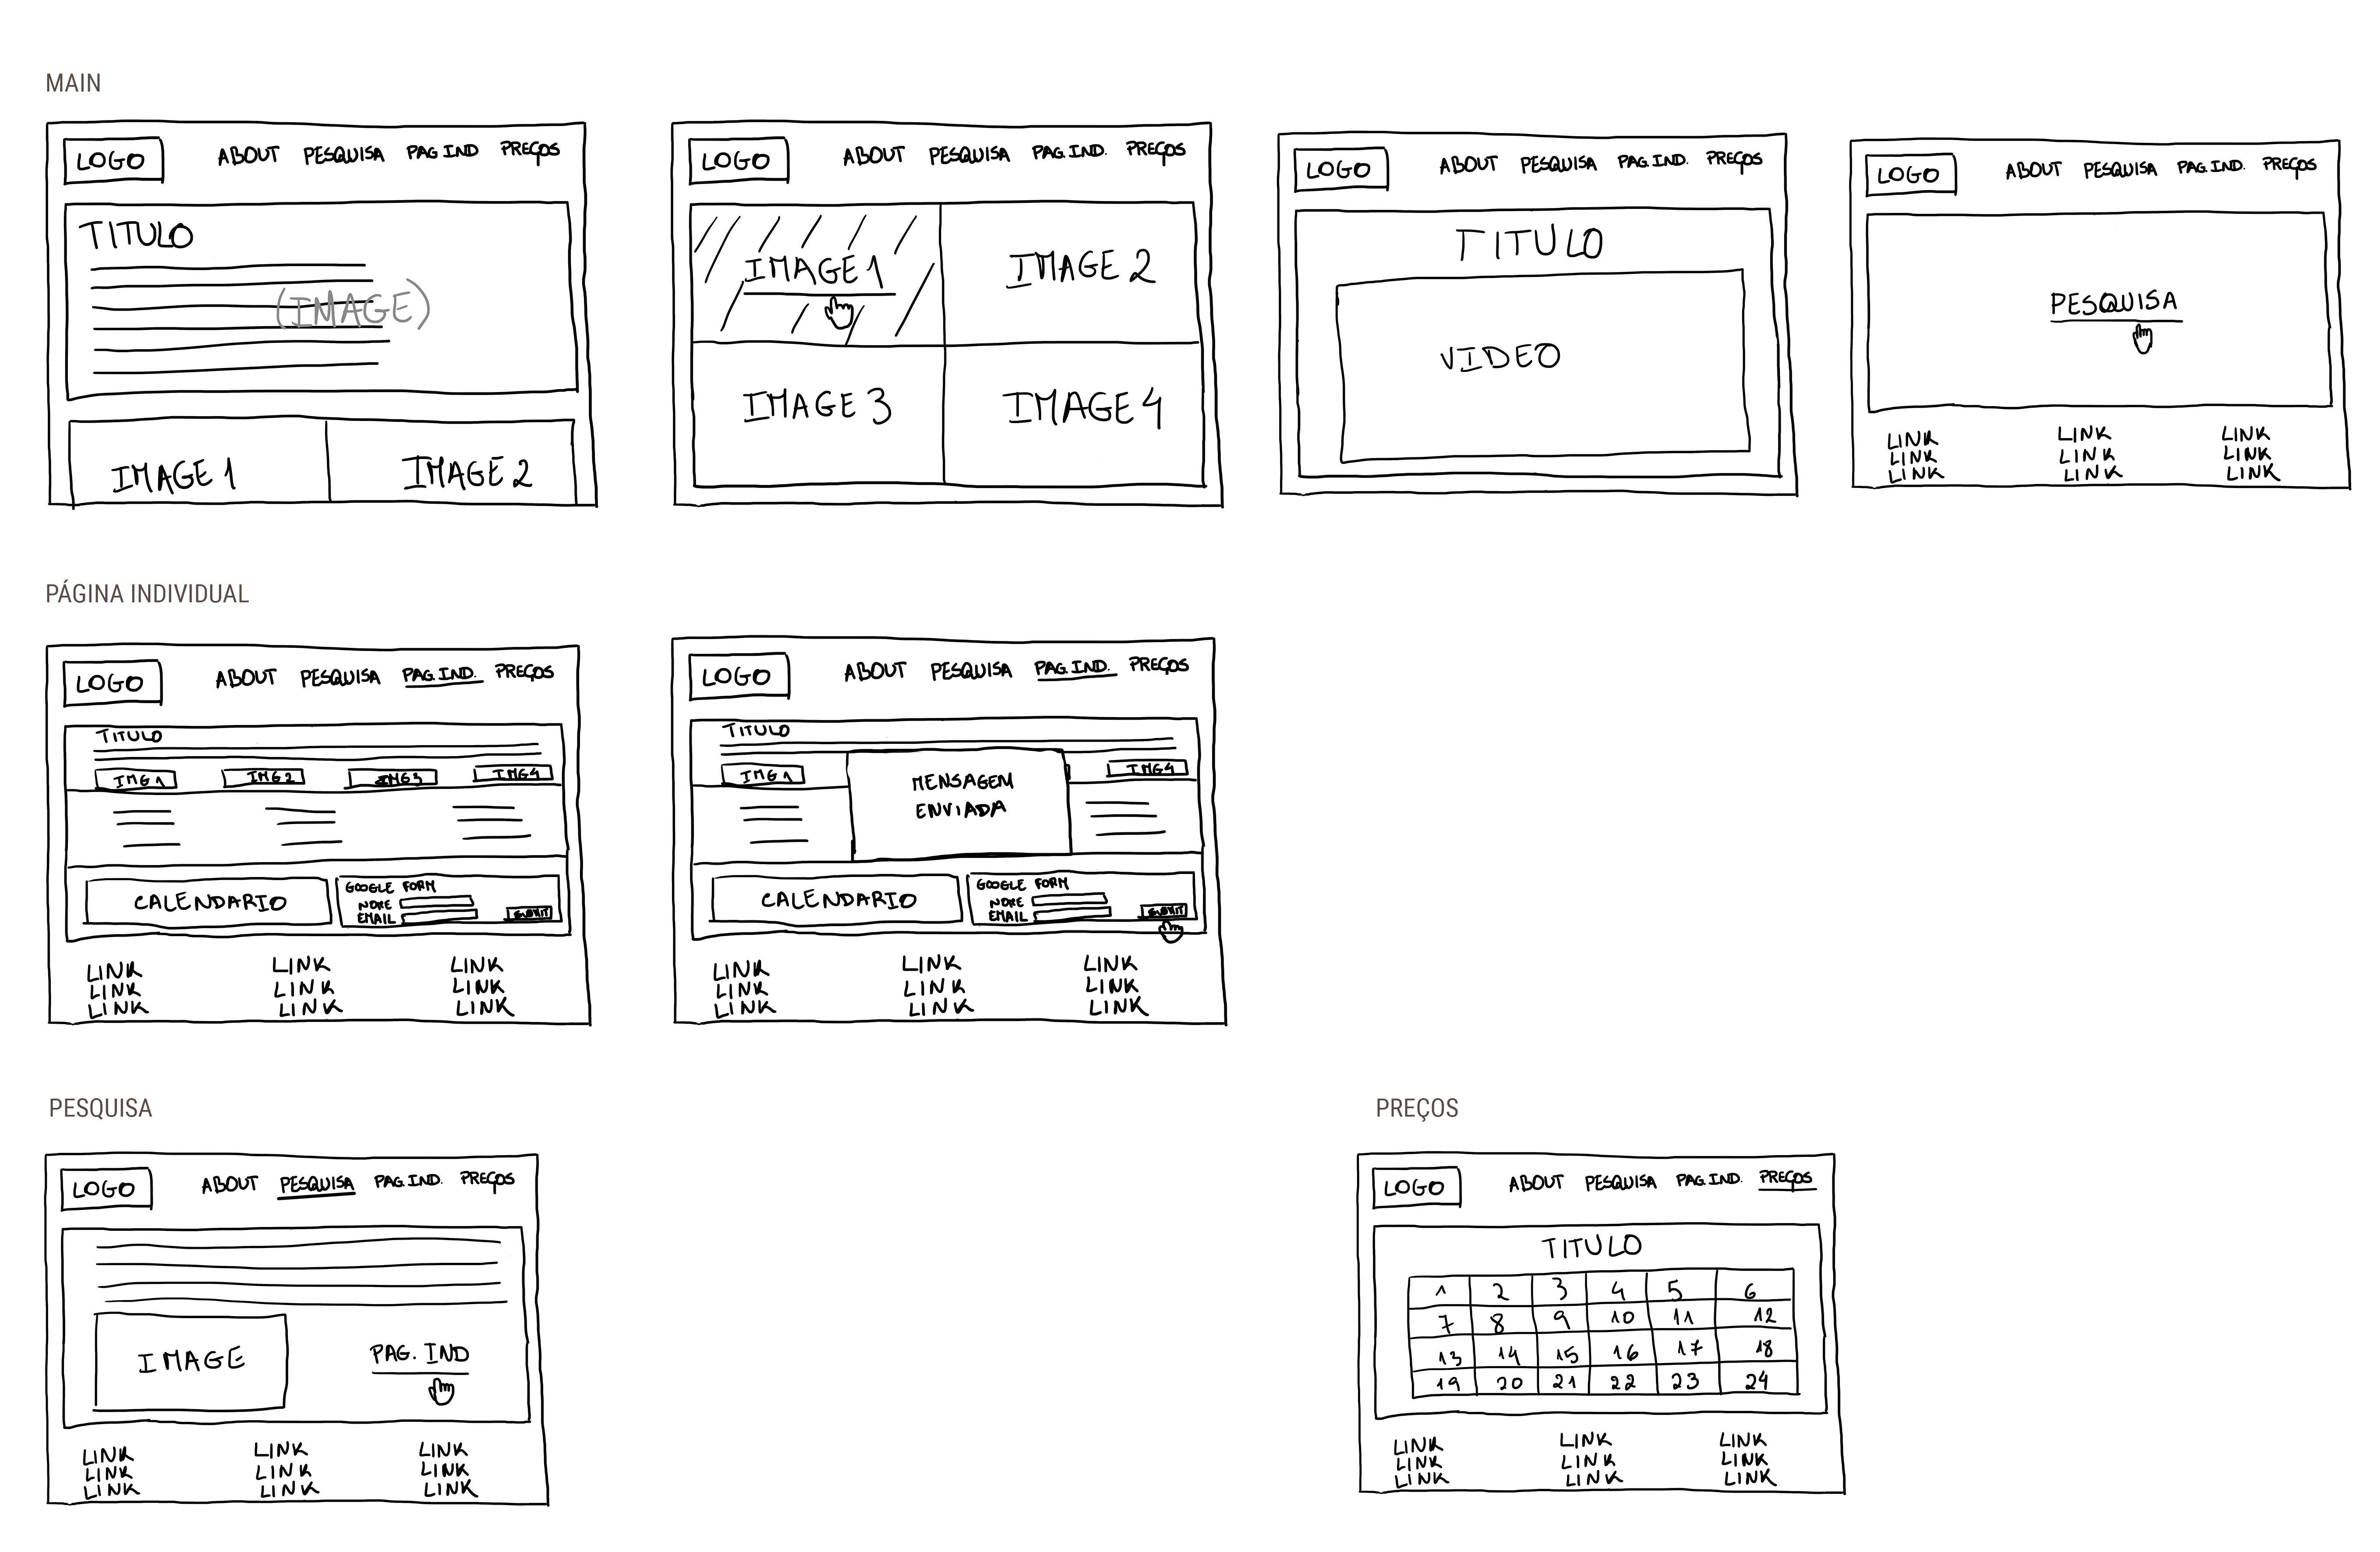 MAIN
LOGO ABOUT PESQUISA PAG IND PREÇOS
TITULO
(IMAGE)
IMAGE 1 IMAGE 2
LOGO ABOUT PESQUISA PAG.IND. PREÇOS
IMAGE 1 IMAGE 2
IMAGE 3 IMAGE 4
LOGO ABOUT PESQUISA PAG.IND. PREÇOS
TITULO
VIDEO
LOGO ABOUT PESQUISA PAG.IND. PREÇOS
PESQUISA
LINK LINK LINK
LINK LINK LINK
LINK LINK LINK
PÁGINA INDIVIDUAL
LOGO ABOUT PESQUISA PAG.IND. PREÇOS
TITULO
IMG 1 IMG 2 IMG 3 IMG 4
CALENDARIO
GOOGLE FORM
NOME
EMAIL SUBMIT
LINK LINK LINK
LINK LINK LINK
LINK LINK LINK
LOGO ABOUT PESQUISA PAG.IND. PREÇOS
TITULO
IMG 1 IMG 4
MENSAGEM
ENVIADA
CALENDARIO
GOOGLE FORM
NOME
EMAIL SUBMIT
LINK LINK LINK
LINK LINK LINK
LINK LINK LINK
PESQUISA
LOGO ABOUT PESQUISA PAG.IND. PREÇOS
IMAGE PAG. IND
LINK LINK LINK
LINK LINK LINK
LINK LINK LINK
PREÇOS
LOGO ABOUT PESQUISA PAG.IND. PREÇOS
TITULO
1 2 3 4 5 6
7 8 9 10 11 12
13 14 15 16 17 18
19 20 21 22 23 24
LINK LINK LINK
LINK LINK LINK
LINK LINK LINK